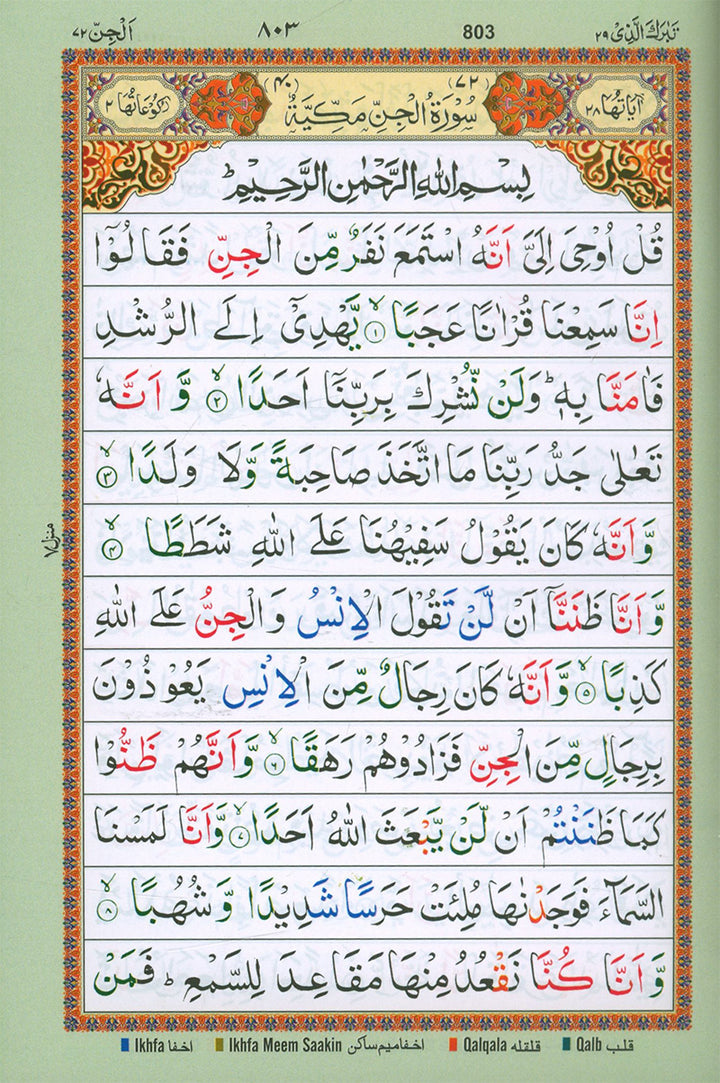 تَبٰرَكَ الَّذِیْ ۲۹ 803 ۸۰۳ اَلْجِنّ ۷۲
اٰیَاتُهَا ۲۸ (۷۲) سُوْرَةُ الْجِنِّ مَكِّیَّةٌ (۴۰) رُكُوْعَاتُهَا ۲
بِسْمِ اللّٰهِ الرَّحْمٰنِ الرَّحِیْمِ ؕ
قُلْ اُوْحِیَ اِلَیَّ اَنَّهُ اسْتَمَعَ نَفَرٌ مِّنَ الْجِنِّ فَقَالُوْۤا
اِنَّا سَمِعْنَا قُرْاٰنًا عَجَبًا ۙ۱ یَّهْدِیْۤ اِلَی الرُّشْدِ
فَاٰمَنَّا بِهٖ ؕ وَلَنْ نُّشْرِكَ بِرَبِّنَاۤ اَحَدًا ۙ۲ وَّ اَنَّهٗ
تَعٰلٰی جَدُّ رَبِّنَا مَا اتَّخَذَ صَاحِبَةً وَّلَا وَلَدًا ۙ۳
وَّاَنَّهٗ كَانَ یَقُوْلُ سَفِیْهُنَا عَلَی اللّٰهِ شَطَطًا ۙ۴
وَّ اَنَّا ظَنَنَّاۤ اَنْ لَّنْ تَقُوْلَ الْاِنْسُ وَالْجِنُّ عَلَی اللّٰهِ
كَذِبًا ۙ۵ وَّاَنَّهٗ كَانَ رِجَالٌ مِّنَ الْاِنْسِ یَعُوْذُوْنَ
بِرِجَالٍ مِّنَ الْجِنِّ فَزَادُوْهُمْ رَهَقًا ۙ۶ وَّاَنَّهُمْ ظَنُّوْا
كَمَا ظَنَنْتُمْ اَنْ لَّنْ یَّبْعَثَ اللّٰهُ اَحَدًا ۙ۷ وَّاَنَّا لَمَسْنَا
السَّمَآءَ فَوَجَدْنٰهَا مُلِئَتْ حَرَسًا شَدِیْدًا وَّ شُهُبًا ۙ۸
وَّ اَنَّا كُنَّا نَقْعُدُ مِنْهَا مَقَاعِدَ لِلسَّمْعِ ؕ فَمَنْ
منزل ۷
Ikhfa اخفا Ikhfa Meem Saakin اخفا میم ساکن Qalqala قلقله Qalb قلب